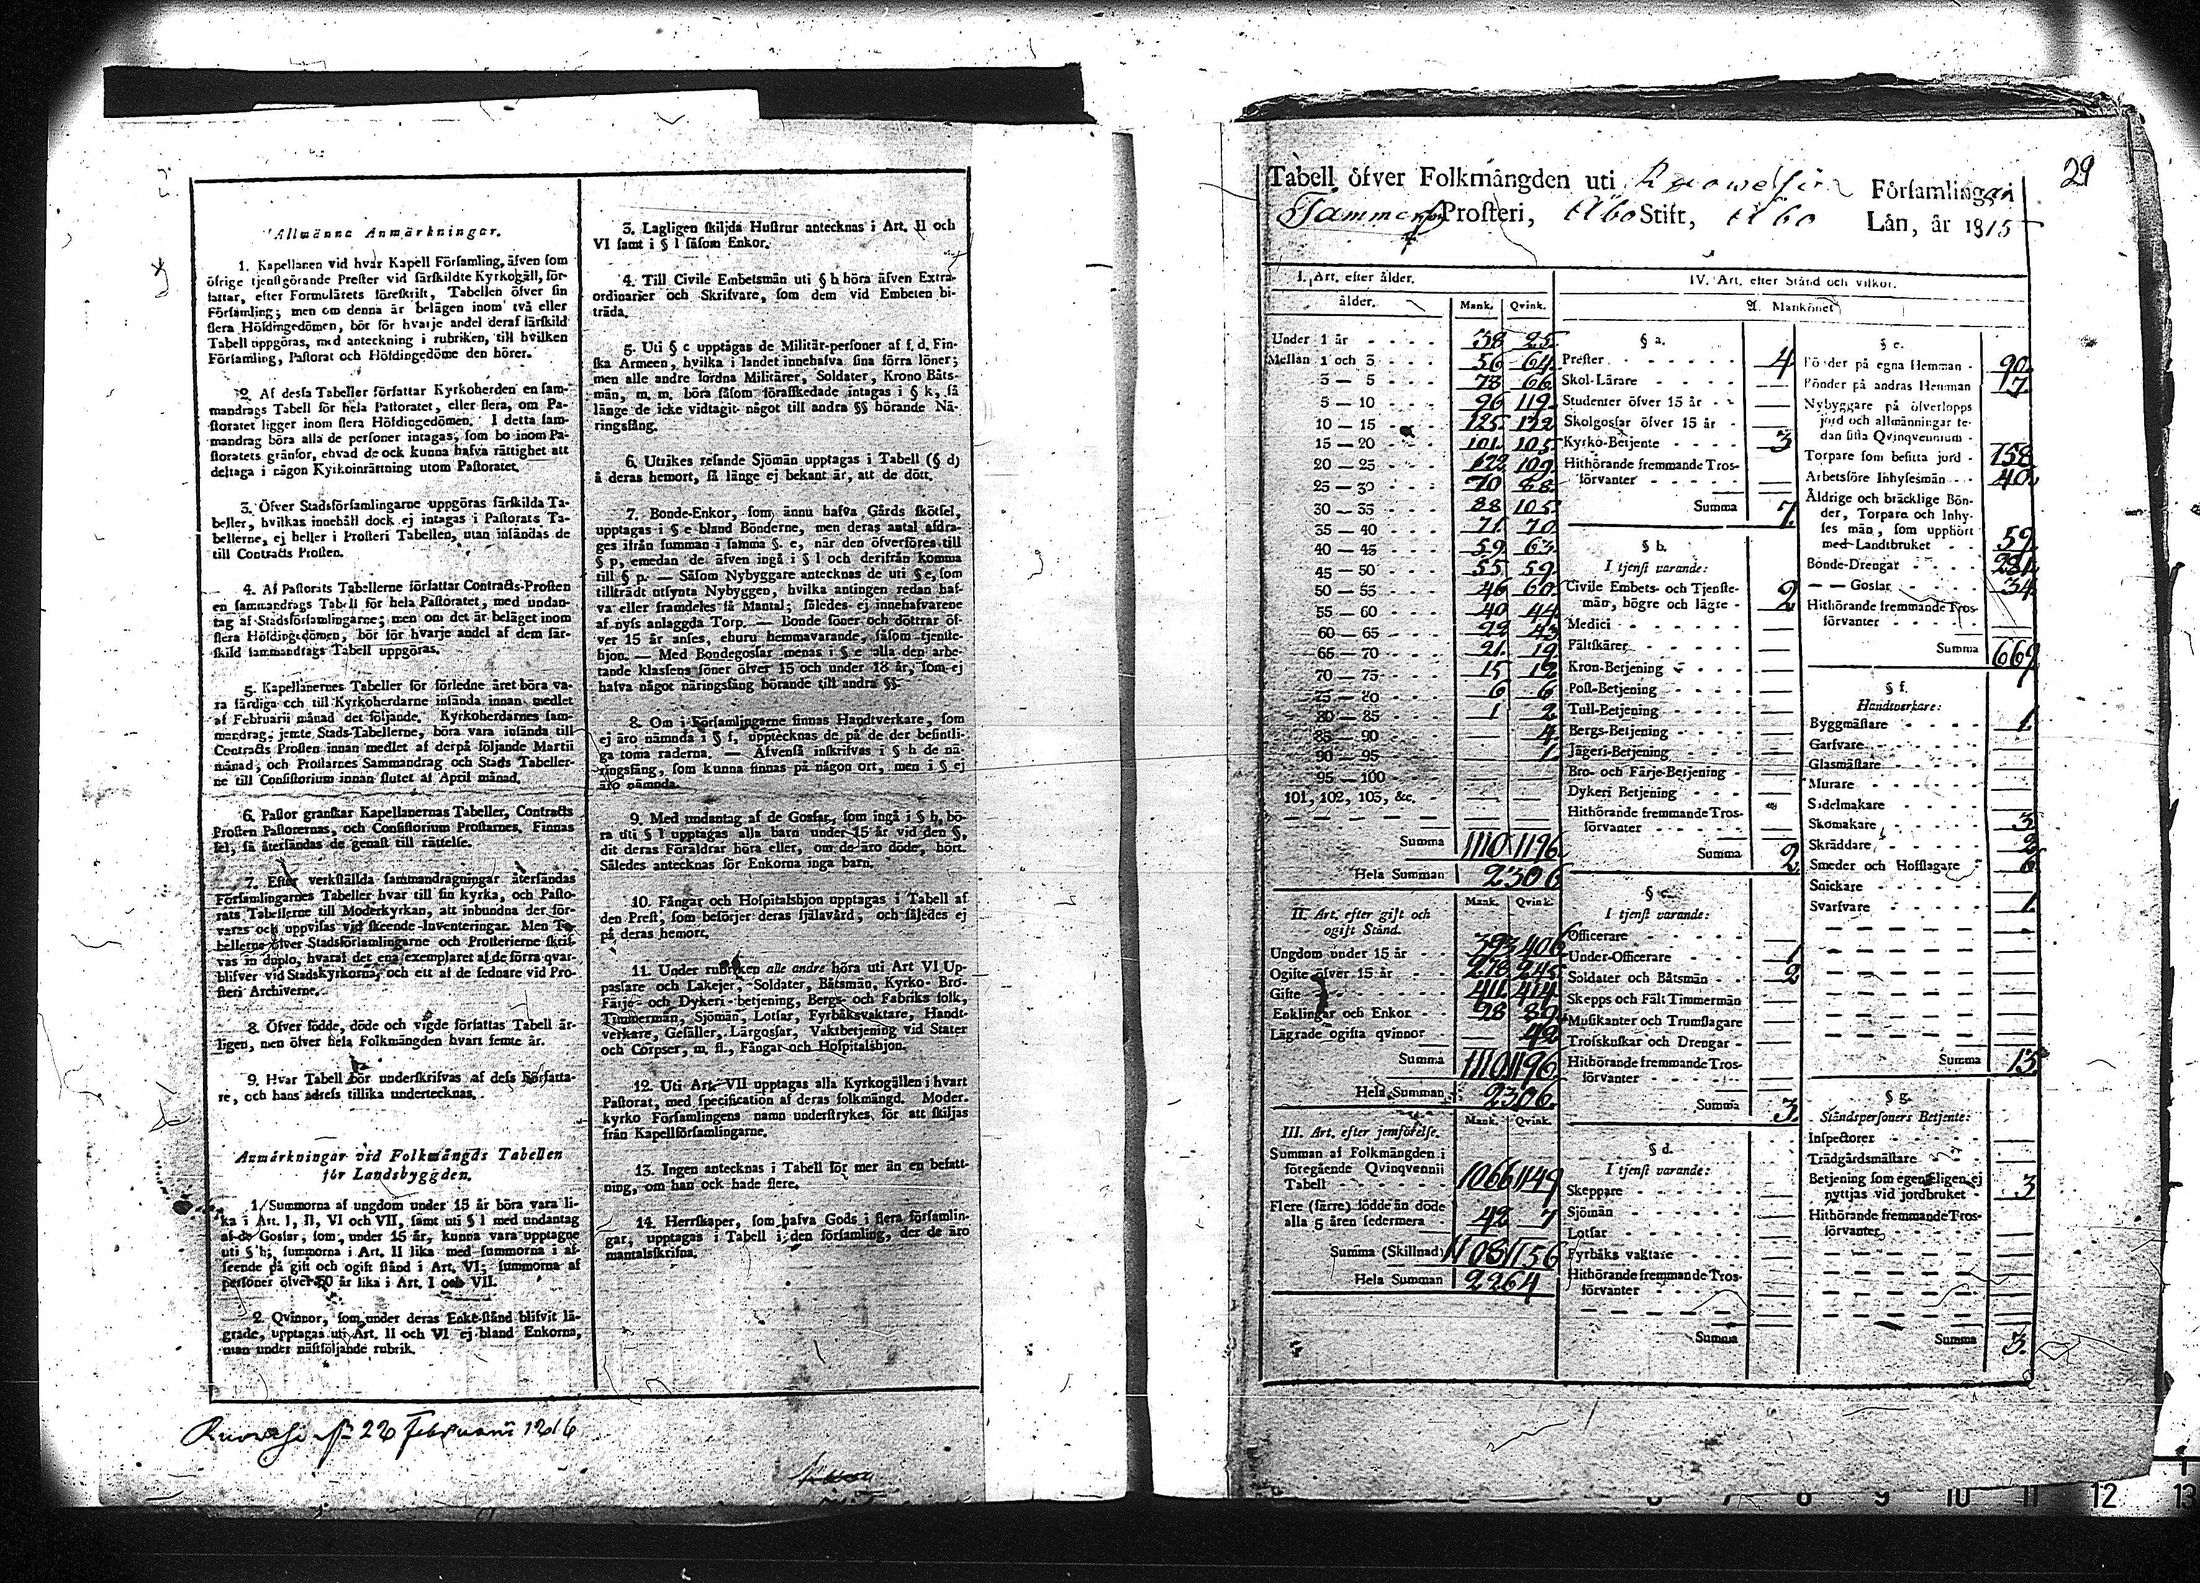 Allmänna Anmärkningar.
1. Kapellanen vid hvar Kapell Församling, äfven som
öfrige tjenstgörande Prester vid särskildte Kyrkogäll, för-
fattar, efter Formulärets föreskrift, Tabellen öfver sin
Församling; men om denna är belägen inom två eller
flera Höfdingedömen, bör för hvarje andel deraf särskild
Tabell uppgöras, med anteckning i rubriken, till hvilken
Församling, Pastorat och Höfdingedöme den hörer.
2. Af dessa Tabeller författar Kyrkoherden en sam-
mandrags Tabell för hela Pastoratet, eller flera, om Pa-
storatet ligger inom flera Höfdingedömen. I detta sam-
mandrag böra alla de personer intagas, som bo inom Pa-
storatets gränsor, ehvad de ock kunna hafva rättighet att
deltaga i någon Kyrkoinrättning utom Pastoratet.
3. Öfver Stadsförsamlingarne uppgöras särskilda Ta-
beller, hvilkas innehåll dock ej intagas i Pastorats Ta-
bellerne, ej heller i Prosteri Tabellen, utan insändas de
till Contracts Prosten.
4. Af Pastorats Tabellerne författar Contracts-Prosten
en sammandrags Tabell för hela Pastoratet, med undan-
tag af Stadsförsamlingarne; men om det är beläget inom
flera Höfdingedömen, bör för hvarje andel af dem sär-
skild sammandrags Tabell uppgöras.
5. Kapellanernes Tabeller för förledne året böra va-
ra färdiga och till Kyrkoherdarne insända innan medlet
af Februarii månad det följande. Kyrkoherdarnes sam-
mandrag, jemte Stads-Tabellerne, böra vara insända till
Contracts Prosten innan medlet af derpå följande Martii
månad, och Prostarnes Sammandrag och Stads Tabeller-
ne till Consistorium innan slutet af April månad.
6. Pastor granskar Kapellanernas Tabeller, Contracts
Prosten Pastorernas, och Consistorium Prostarnes. Finnas
fel, så återsändas de genast till rättelse.
7. Efter verkställda sammandragningar återsändas
Församlingarnes Tabeller hvar till sin kyrka, och Pasto-
rats Tabellerne till Moderkyrkan, att inbundna der för-
varas och uppvisas vid skeende Inventeringar. Men Ta-
bellerne öfver Stadsförsamlingarne och Prosterierne skrif-
vas in duplo, hvaraf det ena exemplaret af de förra qvar-
blifver vid Stadskyrkorna, och ett af de sednare vid Pro-
steri Archiverne.
8. Öfver födde, döde och vigde författas Tabell år-
ligen, men öfver hela Folkmängden hvart femte år.
9. Hvar Tabell bör underskrifvas af dess Författa-
re, och hans adress tillika undertecknas.
Anmärkningar vid Folkmängds Tabellen
för Landsbyggden.
1. Summorna af ungdom under 15 år böra vara li-
ka i Art. I, II, VI och VII, samt uti § l med undantag
af de Gossar, som, under 15 år, kunna vara upptagne
uti § h; summorna i Art. II lika med summorna i af-
seende på gift och ogift stånd i Art. VI; summorna af
personer öfver 50 år lika i Art. I och VII.
2. Qvinnor, som under deras Enke-stånd blifvit lä-
grade, upptagas uti Art. II och VI ej bland Enkorna,
utan under nästföljande rubrik.
3. Lagligen skiljda Hustrur antecknas i Art. II och
VI samt i § l såsom Enkor.
4. Till Civile Embetsmän uti § b höra äfven Extra-
ordinarier och Skrifvare, som dem vid Embeten bi-
träda.
5. Uti § c upptagas de Militär-personer af f. d. Fin-
ska Armeen, hvilka i landet innehafva sina förra löner;
men alle andre fordna Militärer, Soldater, Krono Båts-
män, m. m. böra såsom förafskedade intagas i § k, så
länge de icke vidtagit något till andra §§ hörande Nä-
ringsfång.
6. Utrikes resande Sjömän upptagas i Tabell (§ d)
å deras hemort, så länge ej bekant är, att de dött.
7. Bonde-Enkor, som ännu hafva Gårds skötsel,
upptagas i § e bland Bönderne, men deras antal afdra-
ges ifrån summan i samma §. e, när den öfverföres till
§ p, emedan de äfven ingå i § l och derifrån komma
till § p. — Såsom Nybyggare antecknas de uti § e, som
tillträdt utsynta Nybyggen, hvilka antingen redan haf-
va eller framdeles få Mantal; således ej innehafvarene
af nyss anlaggda Torp. — Bonde söner och döttrar öf-
ver 15 år anses, ehuru hemmavarande, såsom tjenste-
hjon. — Med Bondegossar menas i § e alla den arbe-
tande klassens söner öfver 15 och under 18 år, som ej
hafva något näringsfång hörande till andra §§
8. Om i Församlingarne finnas Handtverkare, som
ej äro nämnda i § f, upptecknas de på de der befintli-
ga toma raderna. — Äfvenså inskrifvas i § h de nä-
ringsfång, som kunna finnas på någon ort, men i § ej
äro nämnda.
9. Med undantag af de Gossar, som ingå i § h, bö-
ra uti § l upptagas alla barn under 15 år vid den §,
dit deras Föräldrar höra eller, om de äro döde, hört.
Således antecknas för Enkorna inga barn.
10. Fångar och Hospitalshjon upptagas i Tabell af
den Prest, som besörjer deras själavård, och således ej
på deras hemort.
11. Under rubriken alle andre böra uti Art VI Up-
passare och Lakejer, Soldater, Båtsmän, Kyrko- Bro-
Färje- och Dykeri-betjening, Bergs- och Fabriks folk,
Timmermän, Sjömän, Lotsar, Fyrbåksvaktare, Handt-
verkare, Gesäller, Lärgossar, Vaktbetjening vid Stater
och Corpser, m. fl., Fångar och Hospitalshjon.
12. Uti Art. VII upptagas alla Kyrkogällen i hvart
Pastorat, med specification af deras folkmängd. Moder-
kyrko Församlingens namn understrykes för att skiljas
från Kapellförsamlingarne.
13. Ingen antecknas i Tabell för mer än en befatt-
ning, om han ock hade flere.
14. Herrskaper, som hafva Gods i flera församlin-
gar, upptagas i Tabell i den församling, der de äro
mantalsskrifna.
Februarii 1816
29
Tabell öfver Folkmängden uti Ruowesi Församlingar
Prosteri, Åbo Stift, Åbo Län, år 1815
I. Art. efter ålder.
ålder. Mank. Qvink.
Under 1 år 38 25
Mellan 1 och 3 56 64
3 — 5 78 66
5 — 10 96 119
10 — 15 125 132
15 — 20 101 105
20 — 25 122 109
25 — 30 70 88
30 — 35 88 105
35 — 40 71 70
40 — 45 59 63
45 — 50 55 59
50 — 55 46 60
55 — 60 40 44
60 — 65 22 43
65 — 70 21 19
70 — 75 15 12
75 — 80 6 6
80 — 85 1 2
85 — 90 4
90 — 95 1
95 — 100
101, 102, 103, &c.
Summa 1110 1196
Hela Summan 2306
II. Art. efter gift och
ogift Stånd.
Mank. Qvink.
Ungdom under 15 år 393 406
Ogifte öfver 15 år 278 245
Gifte 411 414
Enklingar och Enkor 28 89
Lägrade ogifta qvinnor 42
Summa 1110 1196
Hela Summan 2306
III. Art. efter jemförelse.
Mank. Qvink.
Summan af Folkmängden i
föregående Qvinqvennii
Tabell 1066 1149
Flere (färre) födde än döde
alla 5 åren sedermera 42 7
Summa (Skillnad) 1108 1156
Hela Summan 2264
IV. Art. efter Stånd och vilkor.
A. Mankönet
§ a.
Prester 4
Skol-Lärare
Studenter öfver 15 år
Skolgossar öfver 15 år
Kyrko-Betjente 3
Hithörande fremmande Tros-
förvanter
Summa 7
§ b.
I tjenst varande:
Civile Embets- och Tjenste-
män, högre och lägre 2
Medici
Fältskärer
Kron-Betjening
Post-Betjening
Tull-Betjening
Bergs-Betjening
Jägeri-Betjening
Bro- och Färje-Betjening
Dykeri Betjening
Hithörande fremmande Tros-
förvanter
Summa 2
§ c.
I tjenst varande:
Officerare
Under-Officerare 1
Soldater och Båtsmän 2
Skepps och Fält Timmermän
Musikanter och Trumslagare
Trosskuskar och Drengar
Hithörande fremmande Tros-
förvanter
Summa 3.
§ d.
I tjenst varande:
Skeppare
Sjömän
Lotsar
Fyrbåks vaktare
Hithörande fremmande Tros-
förvanter
Summa
§ e.
Bönder på egna Hemman 90
Bönder på andras Hemman 7
Nybyggare på öfverlopps
jord och allmänningar se-
dan sista Qvinqvennium
Torpare som besitta jord 158
Arbetsföre Inhysesmän 40
Åldrige och bräcklige Bön-
der, Torpare och Inhy-
ses män, som upphört
med Landtbruket 59
Bonde-Drengar 281
— — Gossar 34
Hithörande fremmande Tros-
förvanter
Summa 669
§ f.
Handtverkare:
Byggmästare 1
Garfvare
Glasmästare
Murare
Sadelmakare
Skomakare 3
Skräddare 2
Smeder och Hofslagare 6
Snickare
Svarfvare 1
Summa 13
§ g.
Ståndspersoners Betjente:
Inspectorer
Trädgårdsmästare
Betjening som egenteligen ej
nyttjas vid jordbruket 3
Hithörande fremmande Tros-
förvanter
Summa 3.
6 7 8 9 10 11 12 13